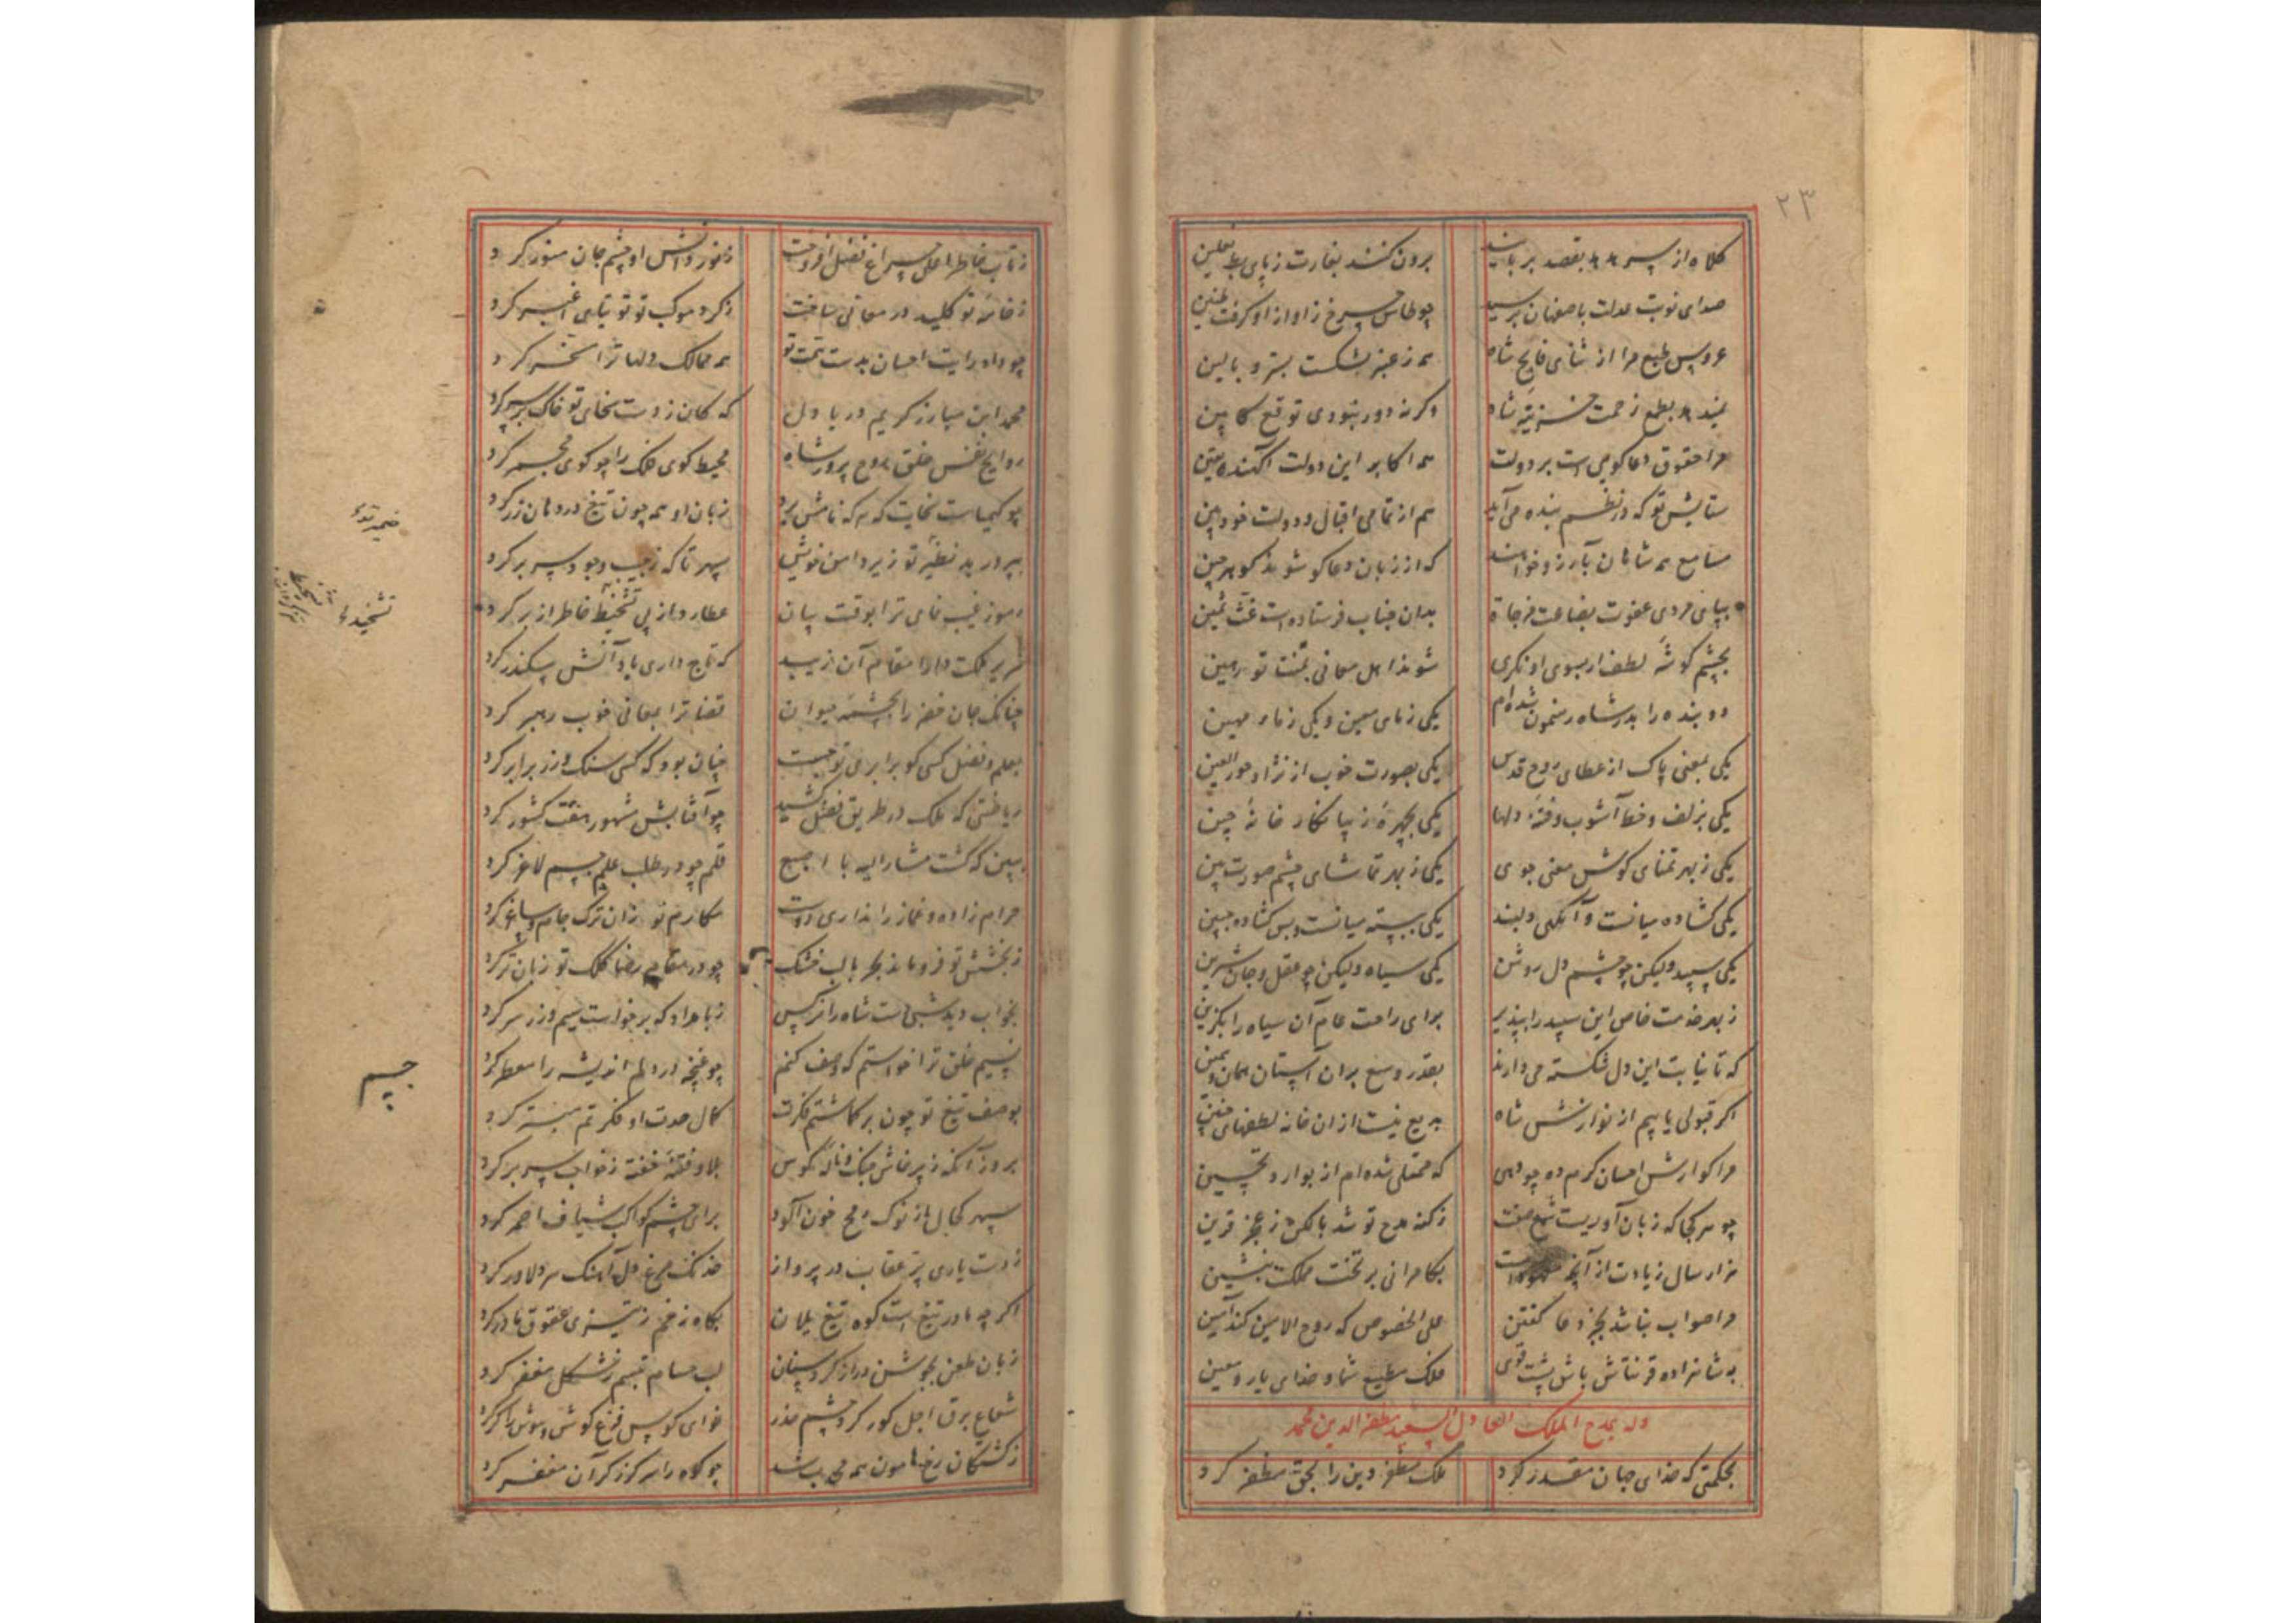 ۲۳
کلاه از سر بقصد بربایند برون کنند بغارت ز پای بط نعلین
صدای نوبت عدلت باصفهان برسید چو طاس چرخ ز آواز او کرفت طنین
عروس طبع مرا از ثنای فایح شاه همه ز عنبر شکست بستر و بالین
بطمع زحمت خزینهٔ شاه وکرنه دور نبودی توقع کابین
مرا حقوق دعا کویی است بر دولت هم اکابر این دولت آکهند یقین
ستایش تو که در نظم بنده می‌آید هم از تمامی اقبال و دولت خود بین
مسامع همه شاهان بآرزو خواهند که از زبان دعا کو شوند کوهرچین
بپای مردی عفوت بضاعت مزجاة بدان جناب فرستاده است غث ثمین
بچشم کوشهٔ لطف ار بسوی او نکری شوند اهل معانی بمنت تو رهین
دو بنده را بدر شاه رهنمون شده‌ام یکی ز مای معین و یکی ز ماء مهین
یکی بمعنی پاک از عطای روح قدس یکی بصورت خوب از نژاد حور العین
یکی بزلف و خط آشوب و فتنهٔ دلها یکی بچهرهٔ زیبا نکار خانهٔ چین
یکی ز بهر تمنای کوش معنی جوی یکی ز بهر تماشای چشم صورت بین
یکی کشاده میانست و آنکهی دلبند یکی ببسته میانست و بس کشاده جبین
یکی سپید ولیکن چو چشم دل روشن یکی سیاه ولیکن چو عقل و جان شیرین
ز بهر خدمت خاص این سپید را بپذیر برای راحت عام آن سیاه را بکزین
که تا نیابت این دل شکسته می‌دارند بقدر وسع بران آستان همان و همین
اکر قبولی یابیم از نوازش شاه بدیع نیست از ان خانه لطفهای چنین
مرا کوارش احسان کرم ده چو دهی که ممتلی شده‌ام از بوارد تحسین
چو هر کجا که زبان آوریست شمع صفت ز کنه مدح تو شد بالکن ز عجز قرین
هزار سال زیادت از آنچ بکامرانی بر تخت مملکت بنشین
مرا صواب نباشد بجز دعا کفتن علی الخصوص که روح الامین کند آمین
به شاهزاده قرنتاش باش پشت قوی ملک مطیع شما و خدای یار و معین
وله بمدح الملک العادل السعید مظفر الدین محمد
بحکمتی که خدای جهان مقدر کرد ملک مظفر دین را بحق مظفر کرد
ز تاب خاطر اعلی چراغ فضل افروخت ز نور دانش او چشم جان منور کرد
ز خامهٔ تو کلید در معانی ساخت ز کرد موکب تو توتیای اغبر کرد
چو داد رایت احسان بدست همت تو همه ممالک دلها ترا مسخر کرد
محمد ابن مبارز کریم دریا دل که کان ز دست سخای تو خاک بر سر کرد
روایح نفس خلق روح پرور شاه محیط کوی فلک را چو کوی مجمر کرد
چو کیمیاست سخایت که هر که نامش برد زبان او همه چون تیغ در دهان زر کرد
بپرورید نظیر تو زیر دامن خویش سپهر تا که ز جیب وجود سر بر کرد
رموز غیب نمای ترا بوقت بیان عطارد از پی تشحیذ خاطر از بر کرد
سریر ملکت دارا مقام آن زیبد که تاج داری با دانش سکندر کرد
چنانک جان خضر را بچشمهٔ حیوان قضا ترا بمعانی خوب رهبر کرد
بعلم و فضل کسی کو برابری تو جست چنان بود که کسی سنک و زر برابر کرد
ریاضتی که ملک در طریق فضل کشید چو آفتابش مشهور هفت کشور کرد
ببین که کشت مشار الیه با اصبع قلم چو در طلب علم جسم لاغر کرد
حرام زاده و غماز را نداری دوست مکارم تو زان ترک جام و ساغر کرد
ز بخشش تو فرو ماند بحر با لب خشک چو در مقام رضا کلک تو زبان تر کرد
بخواب دید شبی دست شاه را نرکس ز بامداد که برخواست سیم و زر سر کرد
نسیم خلق ترا خواستم که وصف کنم چو غنچه در دلم اندیشه را معطر کرد
بوصف تیغ تو چون بر کماشتم فکرت کمال حدت او فکرتم مبتر کرد
بروز آنکه ز پرخاش جنک و نالهٔ کوس بلا و فتنهٔ خفته ز خواب سر بر کرد
سپهر کحال از نوک رمح خون آلود برای چشم کواکب شیاف احمر کرد
ز دست یاری پر عقاب در پرواز خدنک مرغ دل آهنک هر دلاور کرد
اکر چه مادر تیغ است کوه تیغ یلان بکاه زخم ز تیزی عقوق مادر کرد
زبان طعن بجوشن دراز کرد سنان لب حسام تبسم ز شکل مغفر کرد
شعاع برق اجل کور کرد چشم حذر نوای کوس فزع کوش هوش را کر کرد
ز کشتکان رخ هامون همه محدب شد چو کوه را سر کرز کران مقعر کرد
ضمیر تدء
تشحیذء
جسم